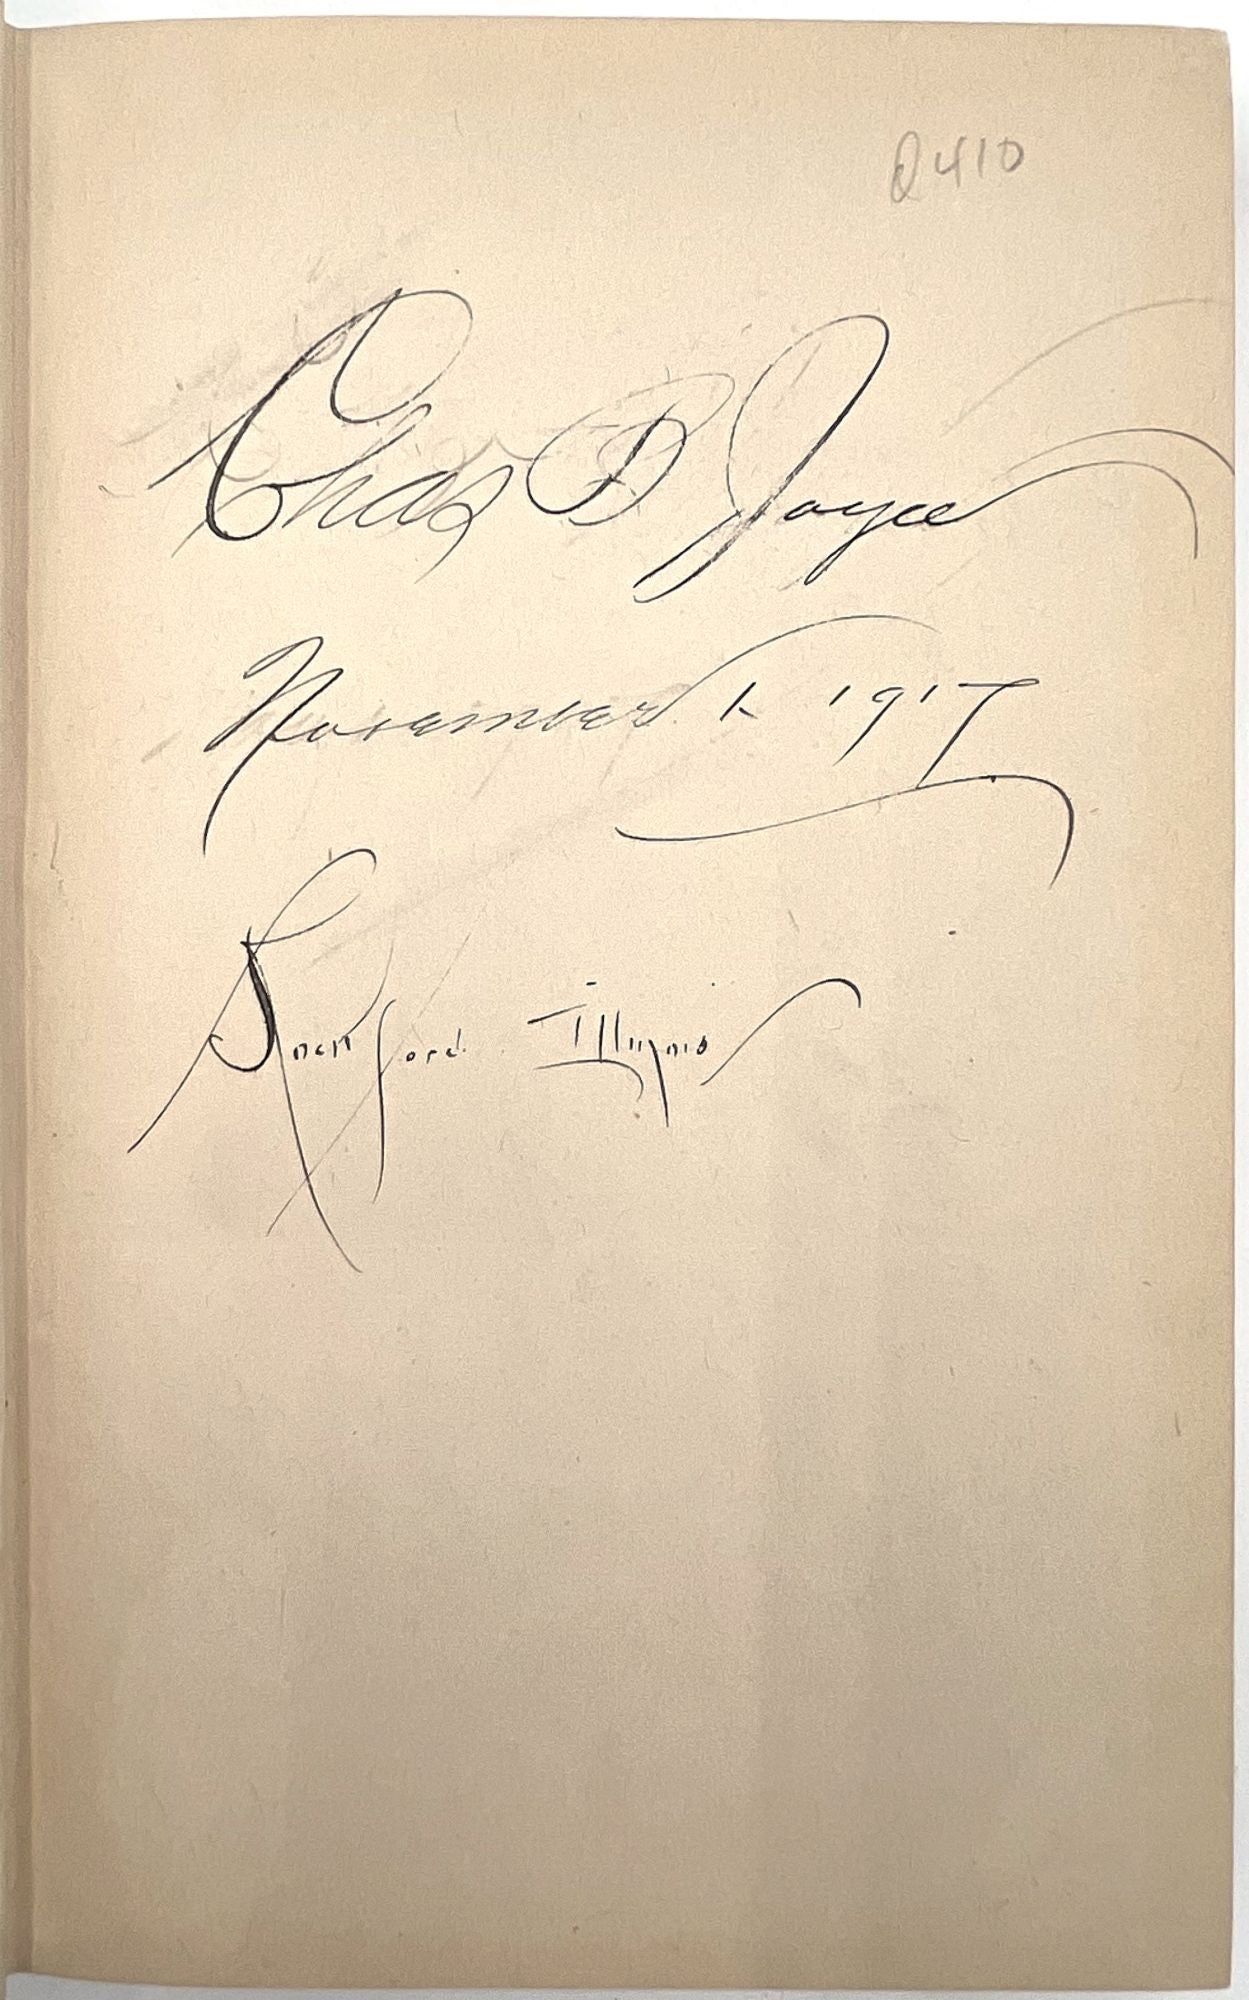 0410
Chas B Joyce
November 1 1917
Rockford Illinois